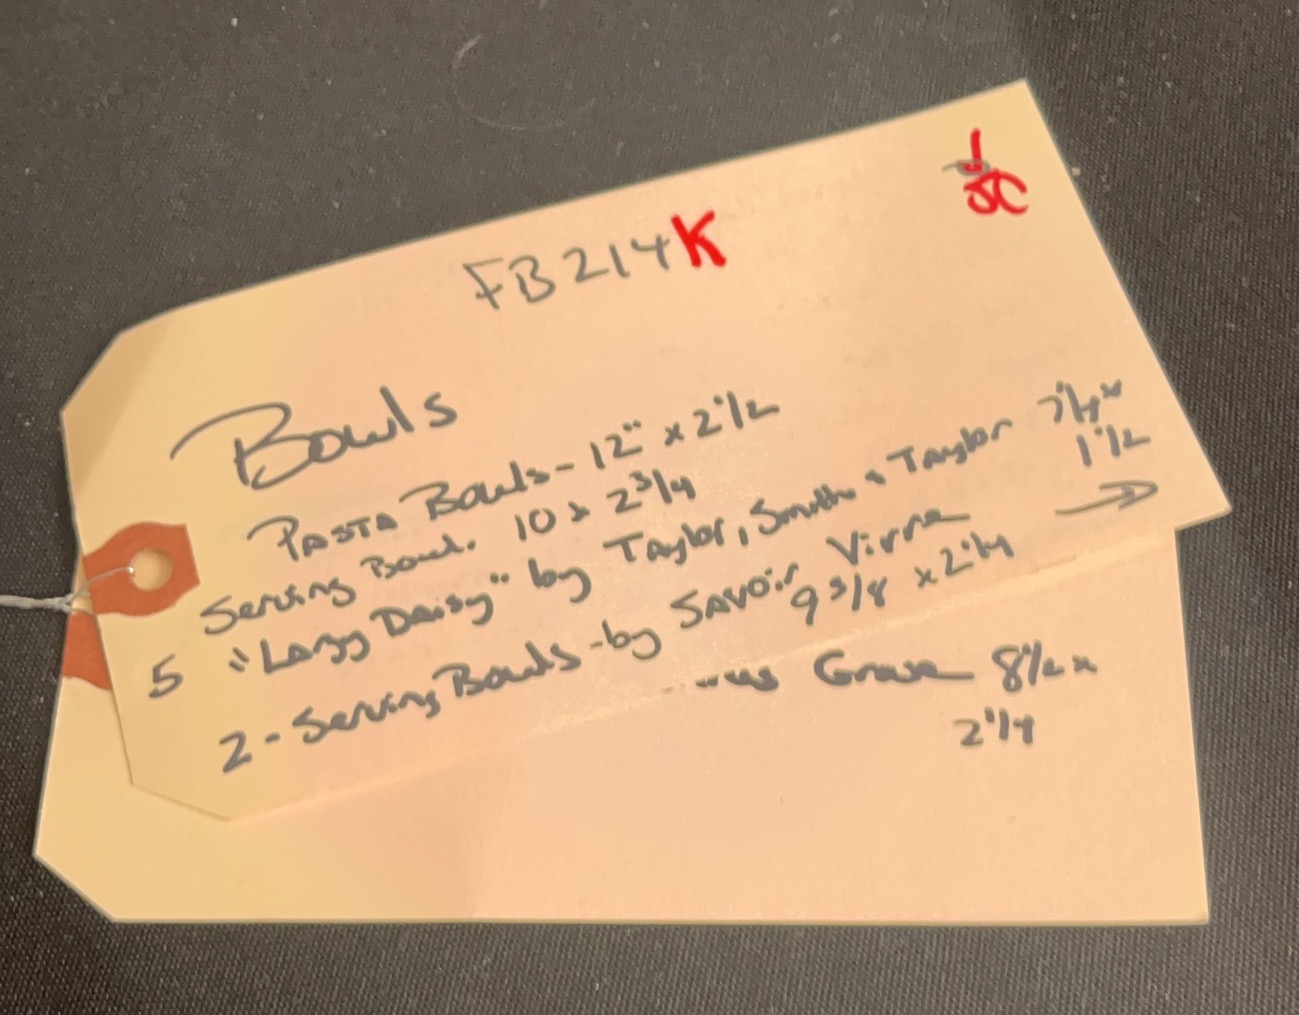 FB214K
Bowls
PASTA Bowls - 12" x 2 1/2
Serving Bowl. 10 x 2 3/4
5 "Lazy Daisy" by Taylor, Smith & Taylor 7 1/4 x 1 1/2
2 - Serving Bowls - by SAVOIR Virre 9 3/8 x 2 1/4
8 1/2 x
2 1/4